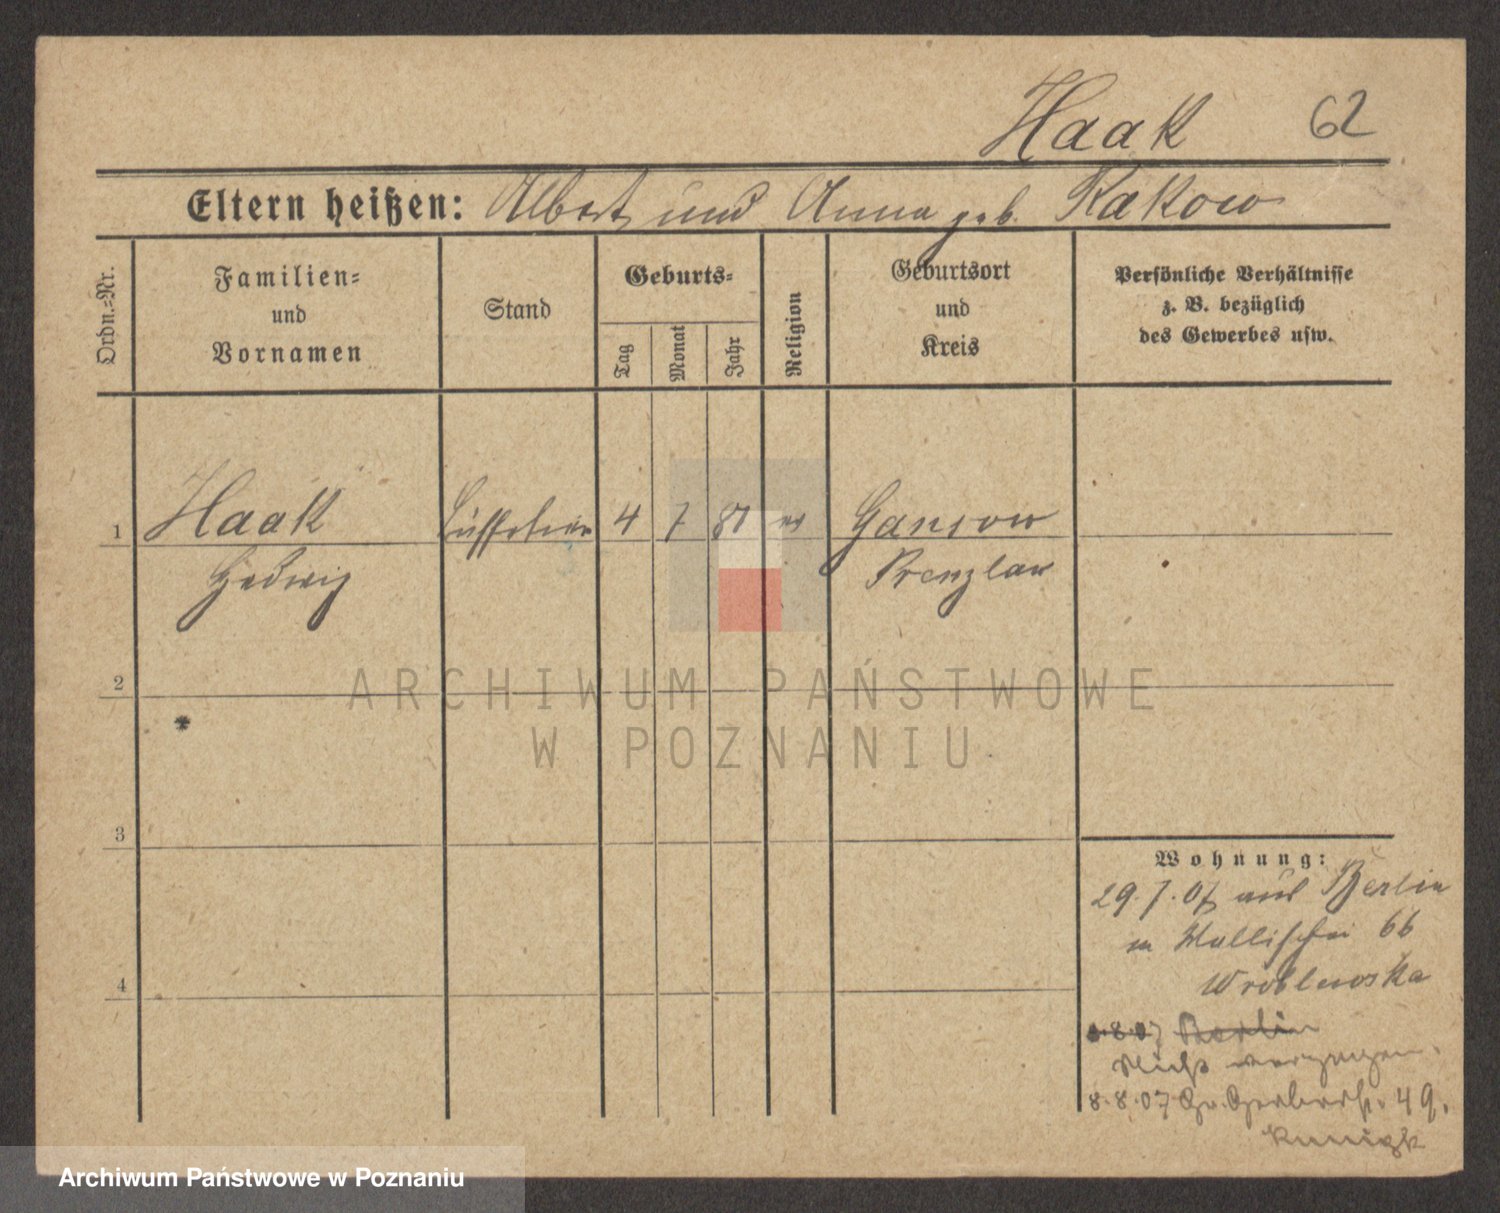 Haak 62
Eltern heißen: Albert und Anna geb. Rakow
Ordn.=Nr.
Familien=
und
Vornamen
Stand
Geburts=
Tag
Monat
Jahr
Religion
Geburtsort
und
Kreis
Persönliche Verhältnisse
z. B. bezüglich
des Gewerbes usw.
1 Haak 4 7 81 ev Gansow
Hedwig Prenzlau
2
3
4
Wohnung:
29.7.07 aus Berlin
Wallischei 66
Wroblewska
8.07 Berlin
Nicht verzogen.
8.8.07 Gr. Gerberstr. 49.
ARCHIWUM PAŃSTWOWE
W POZNANIU
Archiwum Państwowe w Poznaniu